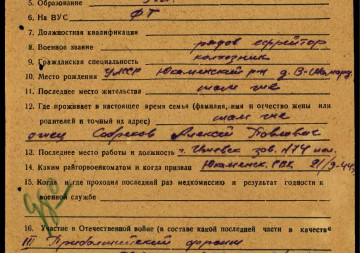 5. Образование
6. На ВУС ФТ
7. Должностная квалификация
8. Военное звание рядов ефрейтор
9. Гражданская специальность колхозник
10. Место рождения УАССР Юкаменский р-н д. В-
11. Последнее место жительства там же
12. Где проживает в настоящее время семья (фамилия, имя и отчество жены или
родителей и точный их адрес) там же
отец Алексей Павлович
13. Последнее место работы и должность г. Ижевск зав. №74
14. Каким райгорвоенкоматом и когда призван Юкаменск. РВК
15. Когда и где проходил последний раз медкомиссию и результат годности к
военной службе
16. Участие в Отечественной войне (в составе какой последней части в качестве
III Прибалтийский фронт